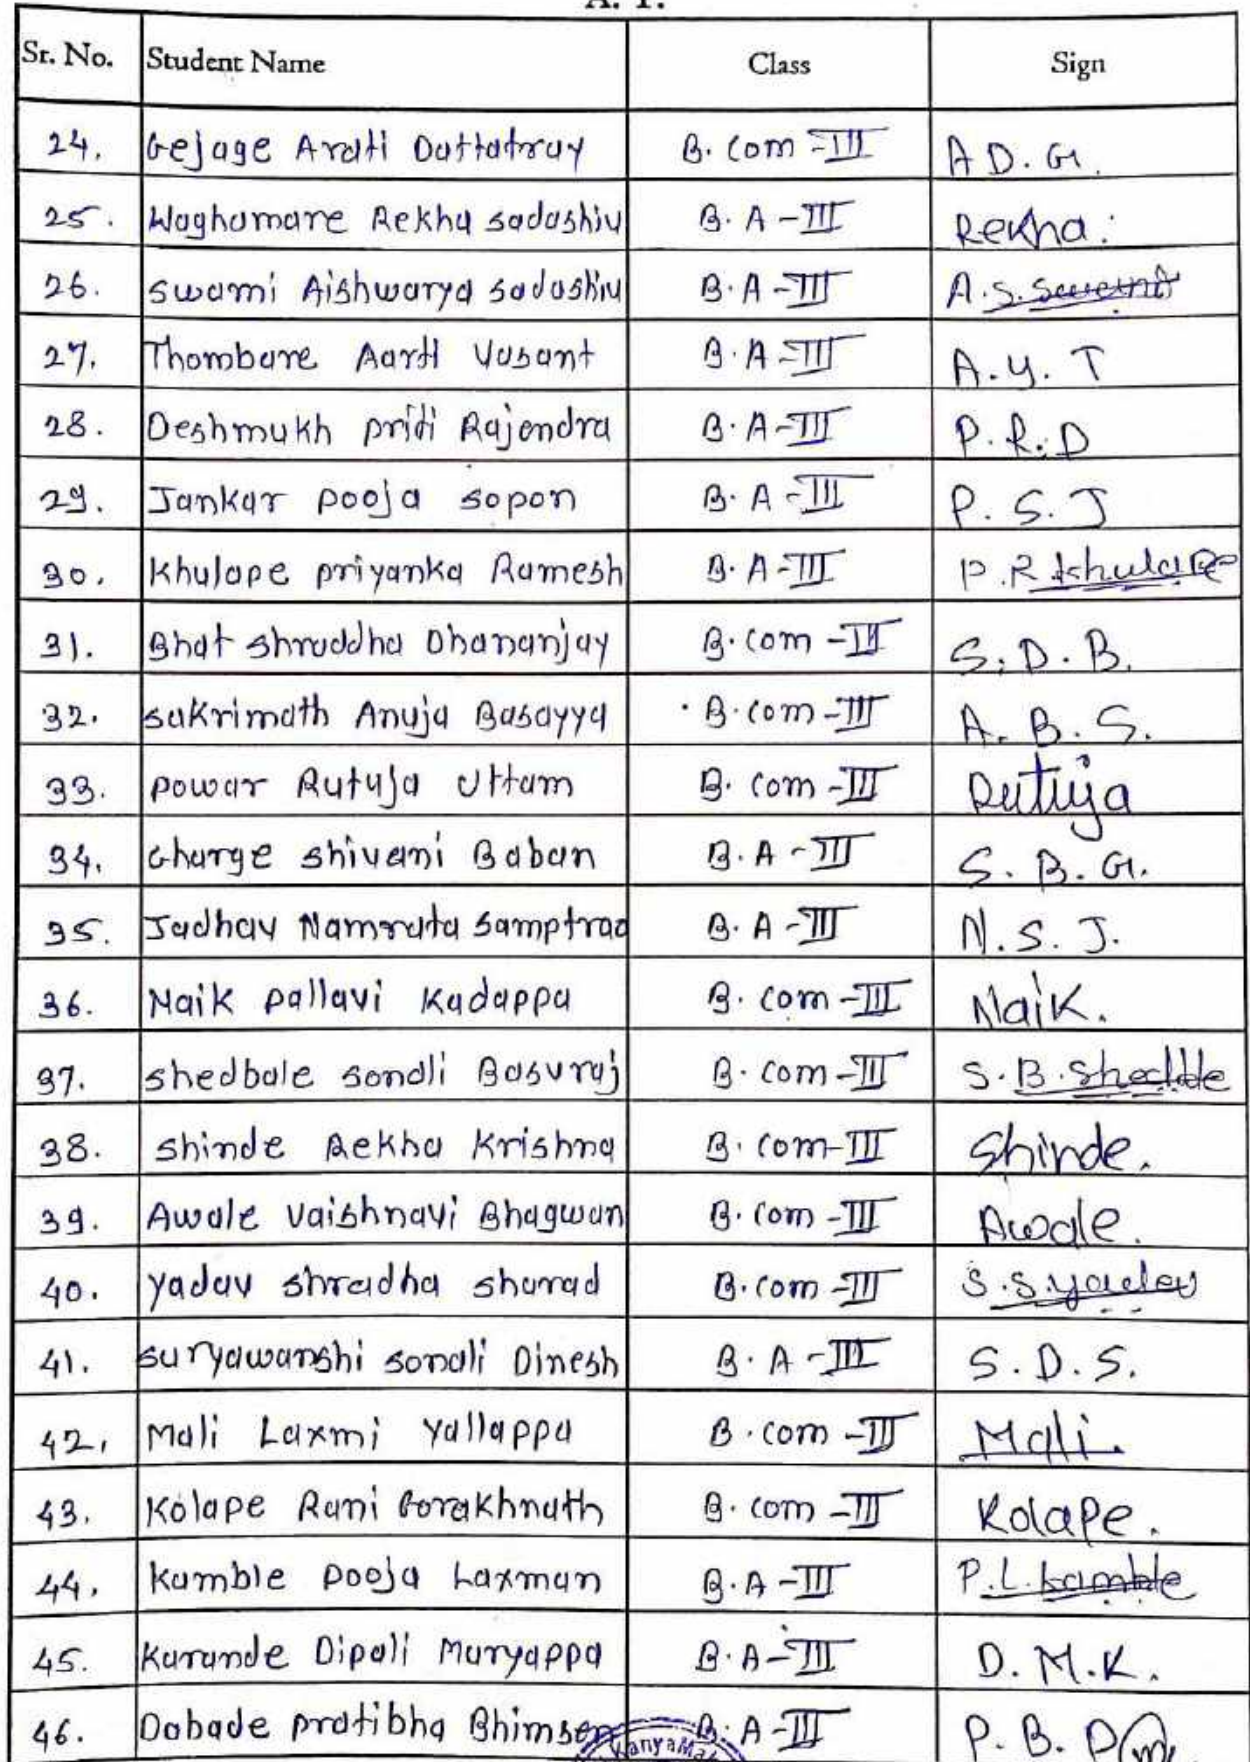 A. Y.
Sr. No. Student Name Class Sign
24. Gejage Arati Dattatray B. com - III A D. G.
25. Waghamare Rekha sadashiv B. A - III Rekha.
26. swami Aishwarya sadashiv B. A - III A. S. Swami
27. Thombare Aarti Vasant B. A - III A. Y. T
28. Deshmukh priti Rajendra B. A - III P. R. D
29. Jankar pooja sopan B. A - III P. S. J
30. Khulape priyanka Ramesh B. A - III P. R Khulape
31. Bhat shraddha Dhananjay B. com - III S. D. B.
32. sakrimath Anuja Basayya B. com - III A. B. S.
33. powar Rutuja Uttam B. com - III Rutuja
34. Gharge shivani Baban B. A - III S. B. G.
35. Jadhav Namrata Samptrao B. A - III N. S. J.
36. Naik pallavi Kadappa B. com - III Naik.
37. shedbale sonali Basvraj B. com - III S. B. Shedble
38. shinde Rekha Krishna B. com - III Shinde.
39. Awale Vaishnavi Bhagwan B. com - III Awale.
40. yadav shradha sharad B. com - III S. S. yadav
41. suryawanshi sonali Dinesh B. A - III S. D. S.
42. Mali Laxmi Yallappa B. com - III Mali.
43. Kolape Rani Gorakhnath B. com - III Kolape.
44. Kamble pooja Laxman B. A - III P. L. Kamble
45. Karande Dipali Maryappa B. A - III D. M. K.
46. Dabade pratibha Bhimsen B. A - III P. B. D